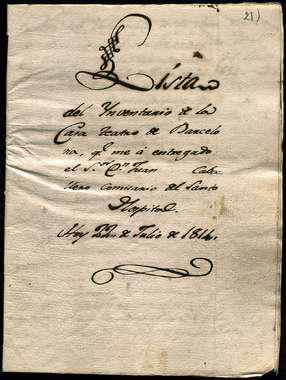 21)
Lista
del Ynventario de la
Casa Teatro de Barcelo
na, qe. me á entregado
el Sor. Dn. Juan Caba
llero Comisario del Santo
Hospital.
Hoy 22 de Julio de 1814.